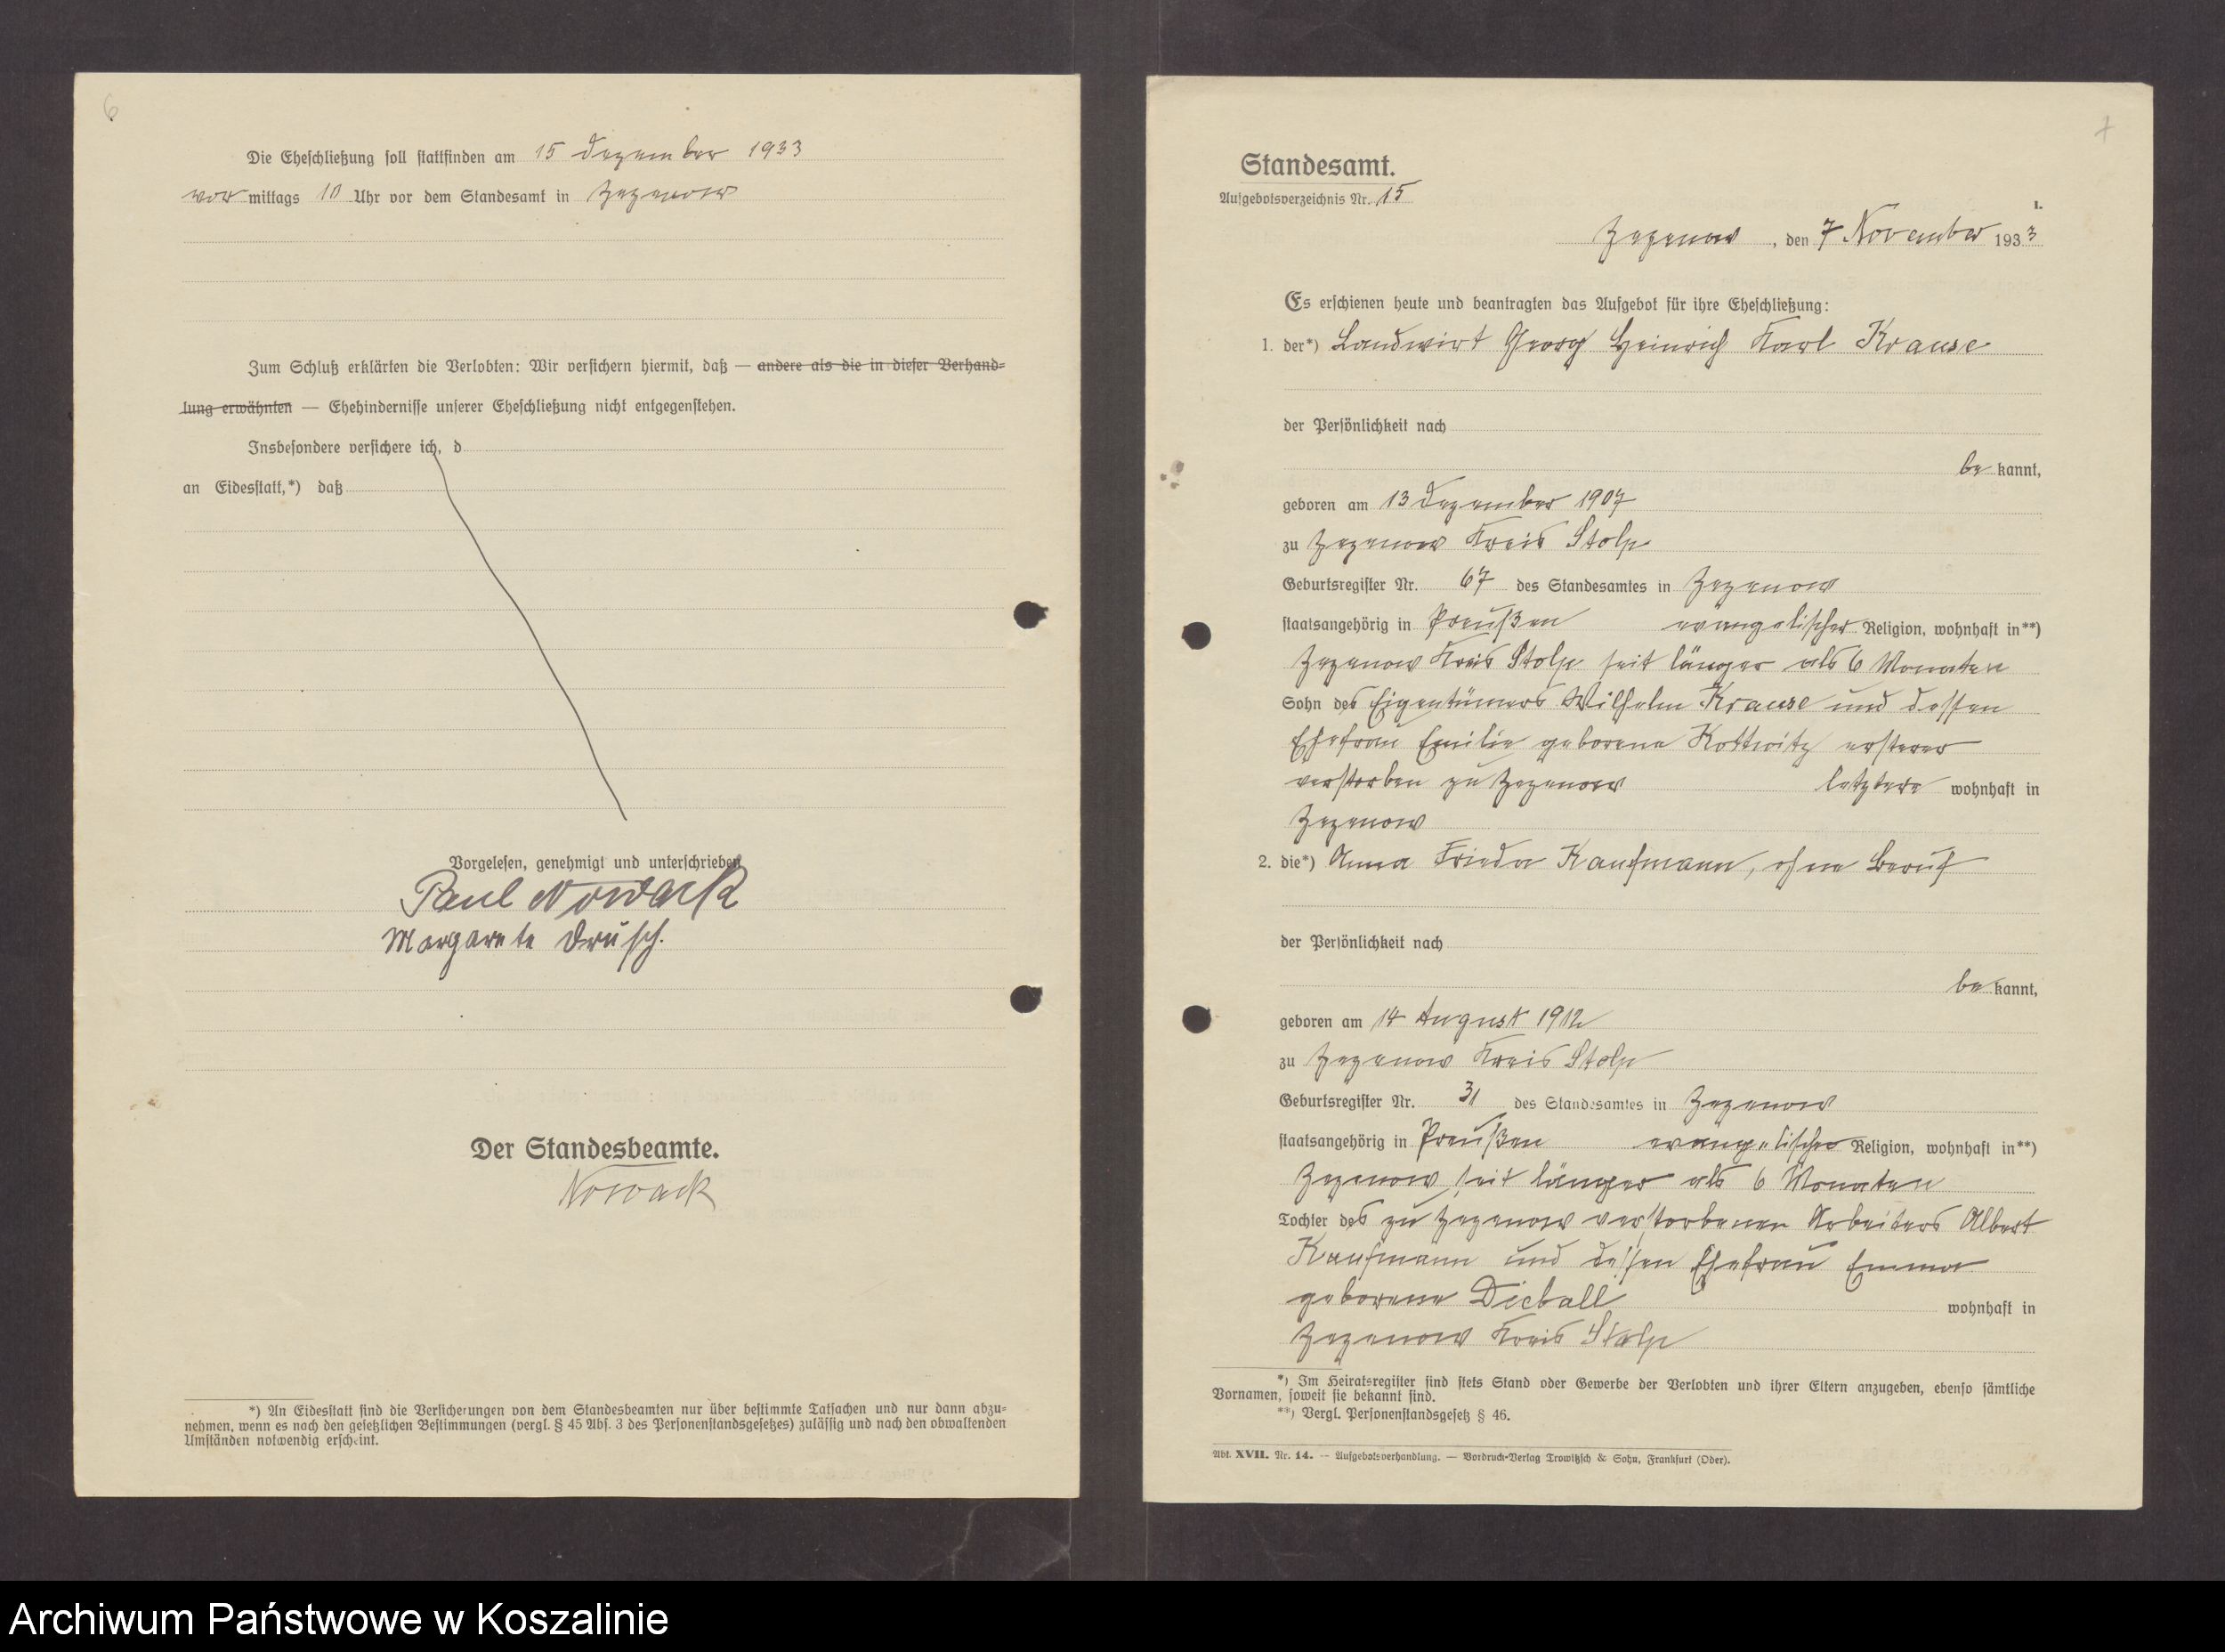 6
Die Eheschließung soll stattfinden am 15 Dezember 1933
vor mittags 10 Uhr vor dem Standesamt in Zezenow
Zum Schluß erklärten die Verlobten: Wir versichern hiermit, daß — andere als die in dieser Verhand-
lung erwähnten — Ehehindernisse unserer Eheschließung nicht entgegenstehen.
Insbesondere versichere ich, d
an Eidesstatt,*) daß
Vorgelesen, genehmigt und unterschrieben
Paul Nowack
Margarete Drusch.
Der Standesbeamte.
Nowack
*) An Eidesstatt sind die Versicherungen von dem Standesbeamten nur über bestimmte Tatsachen und nur dann abzu-
nehmen, wenn es nach den gesetzlichen Bestimmungen (vergl. § 45 Abs. 3 des Personenstandsgesetzes) zulässig und nach den obwaltenden
Umständen notwendig erscheint.
7
Standesamt.
Aufgebotsverzeichnis Nr. 15
1.
Zezenow, den 7 November 1933
Es erschienen heute und beantragten das Aufgebot für ihre Eheschließung:
1. der*) Landwirt Georg Heinrich Karl Krause
der Persönlichkeit nach
be kannt,
geboren am 13 Dezember 1907
zu Zezenow Kreis Stolp
Geburtsregister Nr. 67 des Standesamtes in Zezenow
staatsangehörig in Preußen evangelischer Religion, wohnhaft in**)
Zezenow Kreis Stolp seit länger als 6 Monaten
Sohn des Eigentümers Wilhelm Krause und dessen
Ehefrau Emilie geborene Kottwitz ersterer
verstorben zu Zezenow letztere wohnhaft in
Zezenow
2. die*) Anna Frieda Kaufmann, ohne Beruf
der Persönlichkeit nach
be kannt,
geboren am 14 August 1912
zu Zezenow Kreis Stolp
Geburtsregister Nr. 31 des Standesamtes in Zezenow
staatsangehörig in Preußen evangelischer Religion, wohnhaft in**)
Zezenow seit länger als 6 Monaten
Tochter des zu Zezenow verstorbenen Arbeiters Albert
Kaufmann und dessen Ehefrau Emma
geborene Dieball wohnhaft in
Zezenow Kreis Stolp
*) Im Heiratsregister sind stets Stand oder Gewerbe der Verlobten und ihrer Eltern anzugeben, ebenso sämtliche
Vornamen, soweit sie bekannt sind.
**) Vergl. Personenstandsgesetz § 46.
Abt. XVII. Nr. 14. — Aufgebotsverhandlung. — Vordruck-Verlag Trowitzsch & Sohn, Frankfurt (Oder).
Archiwum Państwowe w Koszalinie